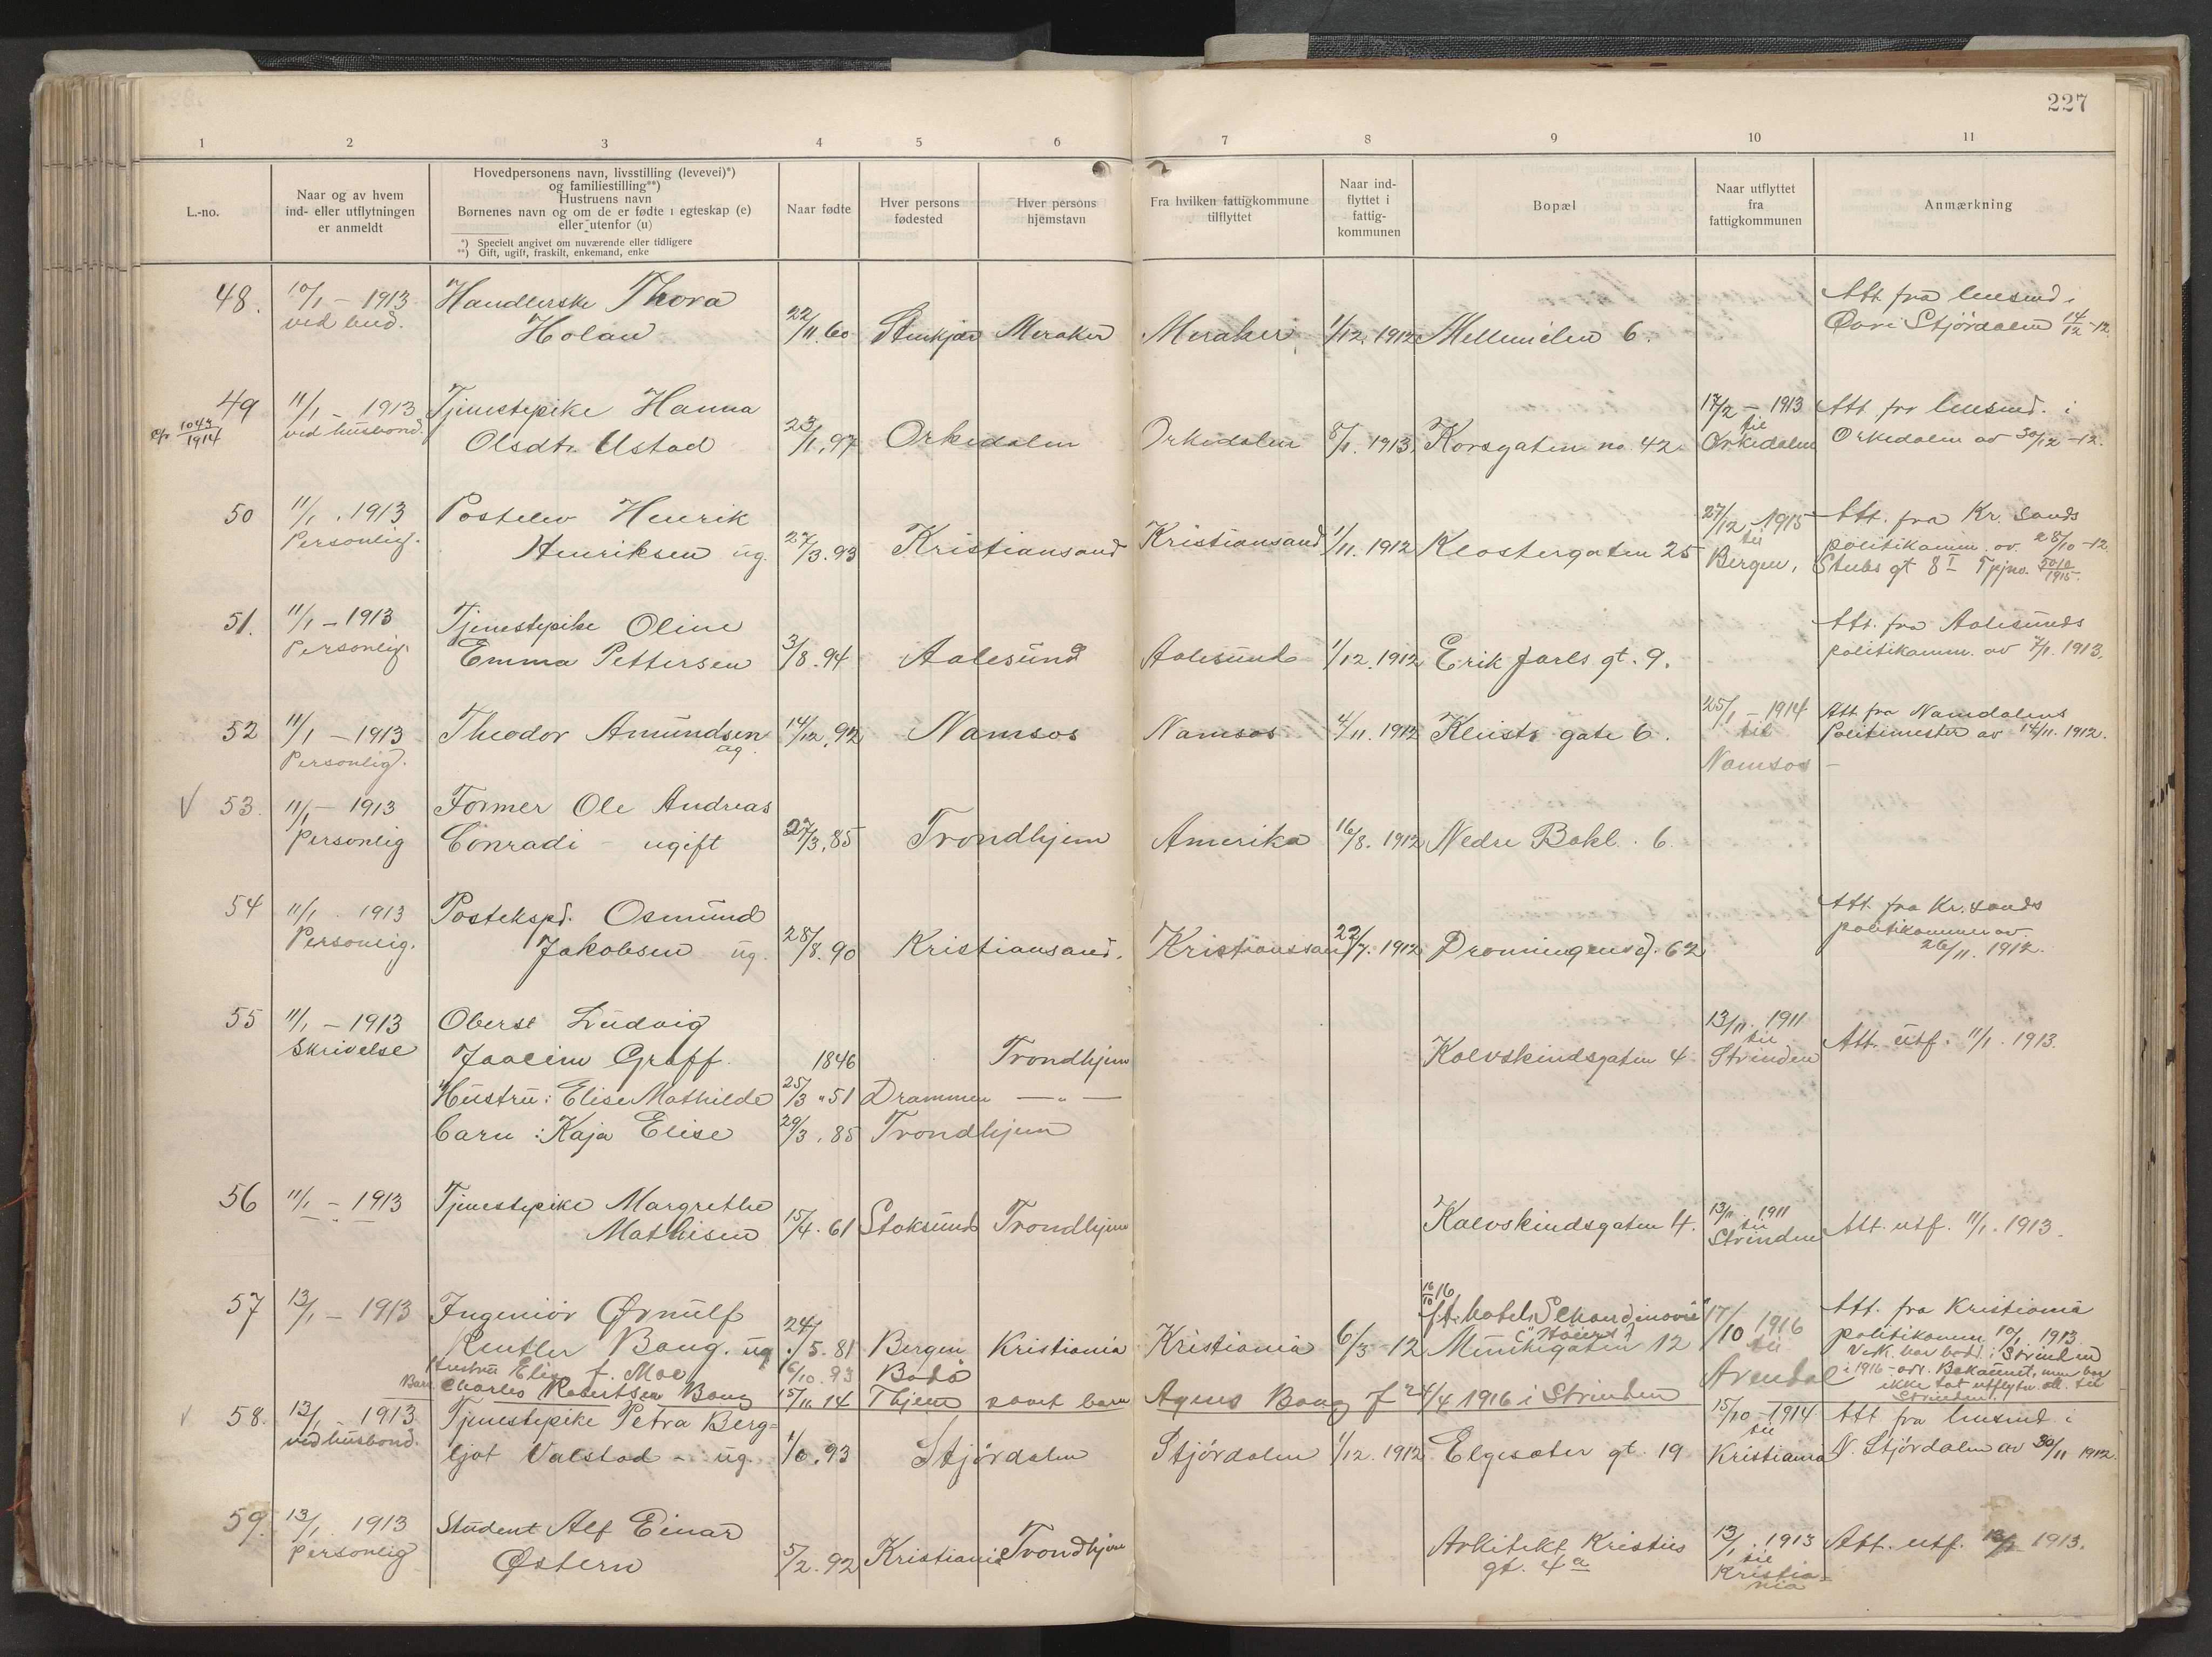 227
1 2 3 4 5 6 7 8 9 10 11
L.-no.
Naar og av hvem
ind- eller utflytningen
er anmeldt
Hovedpersonens navn, livsstilling (levevei)*)
og familiestilling**)
Hustruens navn
Børnenes navn og om de er fødte i egteskap (e)
eller utenfor (u)
*) Specielt angivet om nuværende eller tidligere
**) Gift, ugift, fraskilt, enkemand, enke
Naar fødte
Hver persons
fødested
Hver persons
hjemstavn
Fra hvilken fattigkommune
tilflyttet
Naar ind-
flyttet i
fattig-
kommunen
Bopæl
Naar utflyttet
fra
fattigkommunen
Anmærkning
48. 10/1 - 1913 Handlerske Thora Att. fra lensmd. i
ved bud. Holan 22/11.60 Stenkjær Meraker Meraker 1/12.1912 Mellemilen 6. Øvre Stjördalen 14/12-12.
49 11/1 - 1913 Tjenestepike Hanna 17/2 - 1913 Att. fra lensmd. i
cfr 1043/1914 ved husbond. Olsdtr. Ustad 23/1.97 Orkedalen Orkedalen 8/1.1913. Korsgaten no. 42 til Orkedalen Orkedalen av 30/12-12.
50 11/1 . 1913 Postelev Henrik 27/12 1915 Att. fra Kr. sands
Personlig. Henriksen ug. 27/3.93 Kristiansand Kristiansand 1/11.1912 Klostergaten 25 til politikamm. av 28/10-12.
Bergen, Stubs gt 8 I Tpjno.
51. 11/1 - 1913 Tjenestepike Oline Att. fra Aalesunds
Personlig. Emma Pettersen 3/8.94 Aalesund Aalesund 1/12.1912 Erik Jarls gt. 9. politikamm. av 7/1.1913.
52 11/1 - 1913 Theodor Amundsen 14/12.92 Namsos Namsos 4/11.1912 Kleists gate 6. 25/1 - 1914 Att fra Namdalens
Personlig. ug til Politimester av 14/11.1912.
Namsos -
V 53. 11/1 - 1913 Former Ole Andreas
Personlig Conradi - ugift 27/3.85 Trondhjem Amerika 16/8.1912 Nedre Bakl. 6
54 11/1 . 1913 Postekspd. Osmund Att. fra Kr. sands
Personlig. Jakobsen ug. 28/8.90 Kristiansand. Kristianssand 22/7.1912 Dronningensg. 62 politikammer av
26/11.1912.
55 11/1 - 1913 Oberst Ludvig 13/11.1911
Skrivelse Joacim Graff. 1846 Trondhjem Kalvskindsgaten 4 til Strinden Att. utf. 11/1.1913.
Hustru: Elise Mathilde 25/3 "51 Drammen — " —
barn: Kaja Elise 29/3.85 Trondhjem
56 11/1 - 1913 Tjenestepike Margrethe 13/11.1911
— " — Mathisen 15/4.61 Stoksund Trondhjem Kalvskindsgaten 4. til Strinden Att. utf. 11/1.1913.
57 13/1 - 1913 Ingeniör Ørnulf 16/10 16 st. hotel "Skandinavie" 17/10 1916 Att. fra Kristiania
Bang. ug. 24/5.81 Bergen Kristiania Kristiania 6/3-12 Munkegaten 12 til politikamm. 10/1.1913.
Hustru Elise f. Moe 6/10.93 Bodö Arendal
Barn Charles Robertsen Bang 15/11.14 Thjem samt barn Agnes Bang f 24/4 1916 i Strinden
V. M. har bodd i Strinden
i 1916 - adr. Bakaunet, men har
ikke tat utflytn.att. til
Strinden!
V 58. 13/1 - 1913 Tjenestepike Petra Berg- 15/10 - 1914 Att fra lensmd i
ved husbond. ljot Valstad - ug. 1/6.93 Stjördalen Stjördalen 1/12.1912 Elgesæter gt. 19 til Kristiania N. Stjördalen av 30/11 1912.
59. 13/1 . 1913 Student Alf Einar 13/1.1913
Personlig Østern 5/2.92 Kristiania Trondhjem Arkitekt Kristies til Att. utf. 13/1 1913.
gt. 4a Kristia-
nia